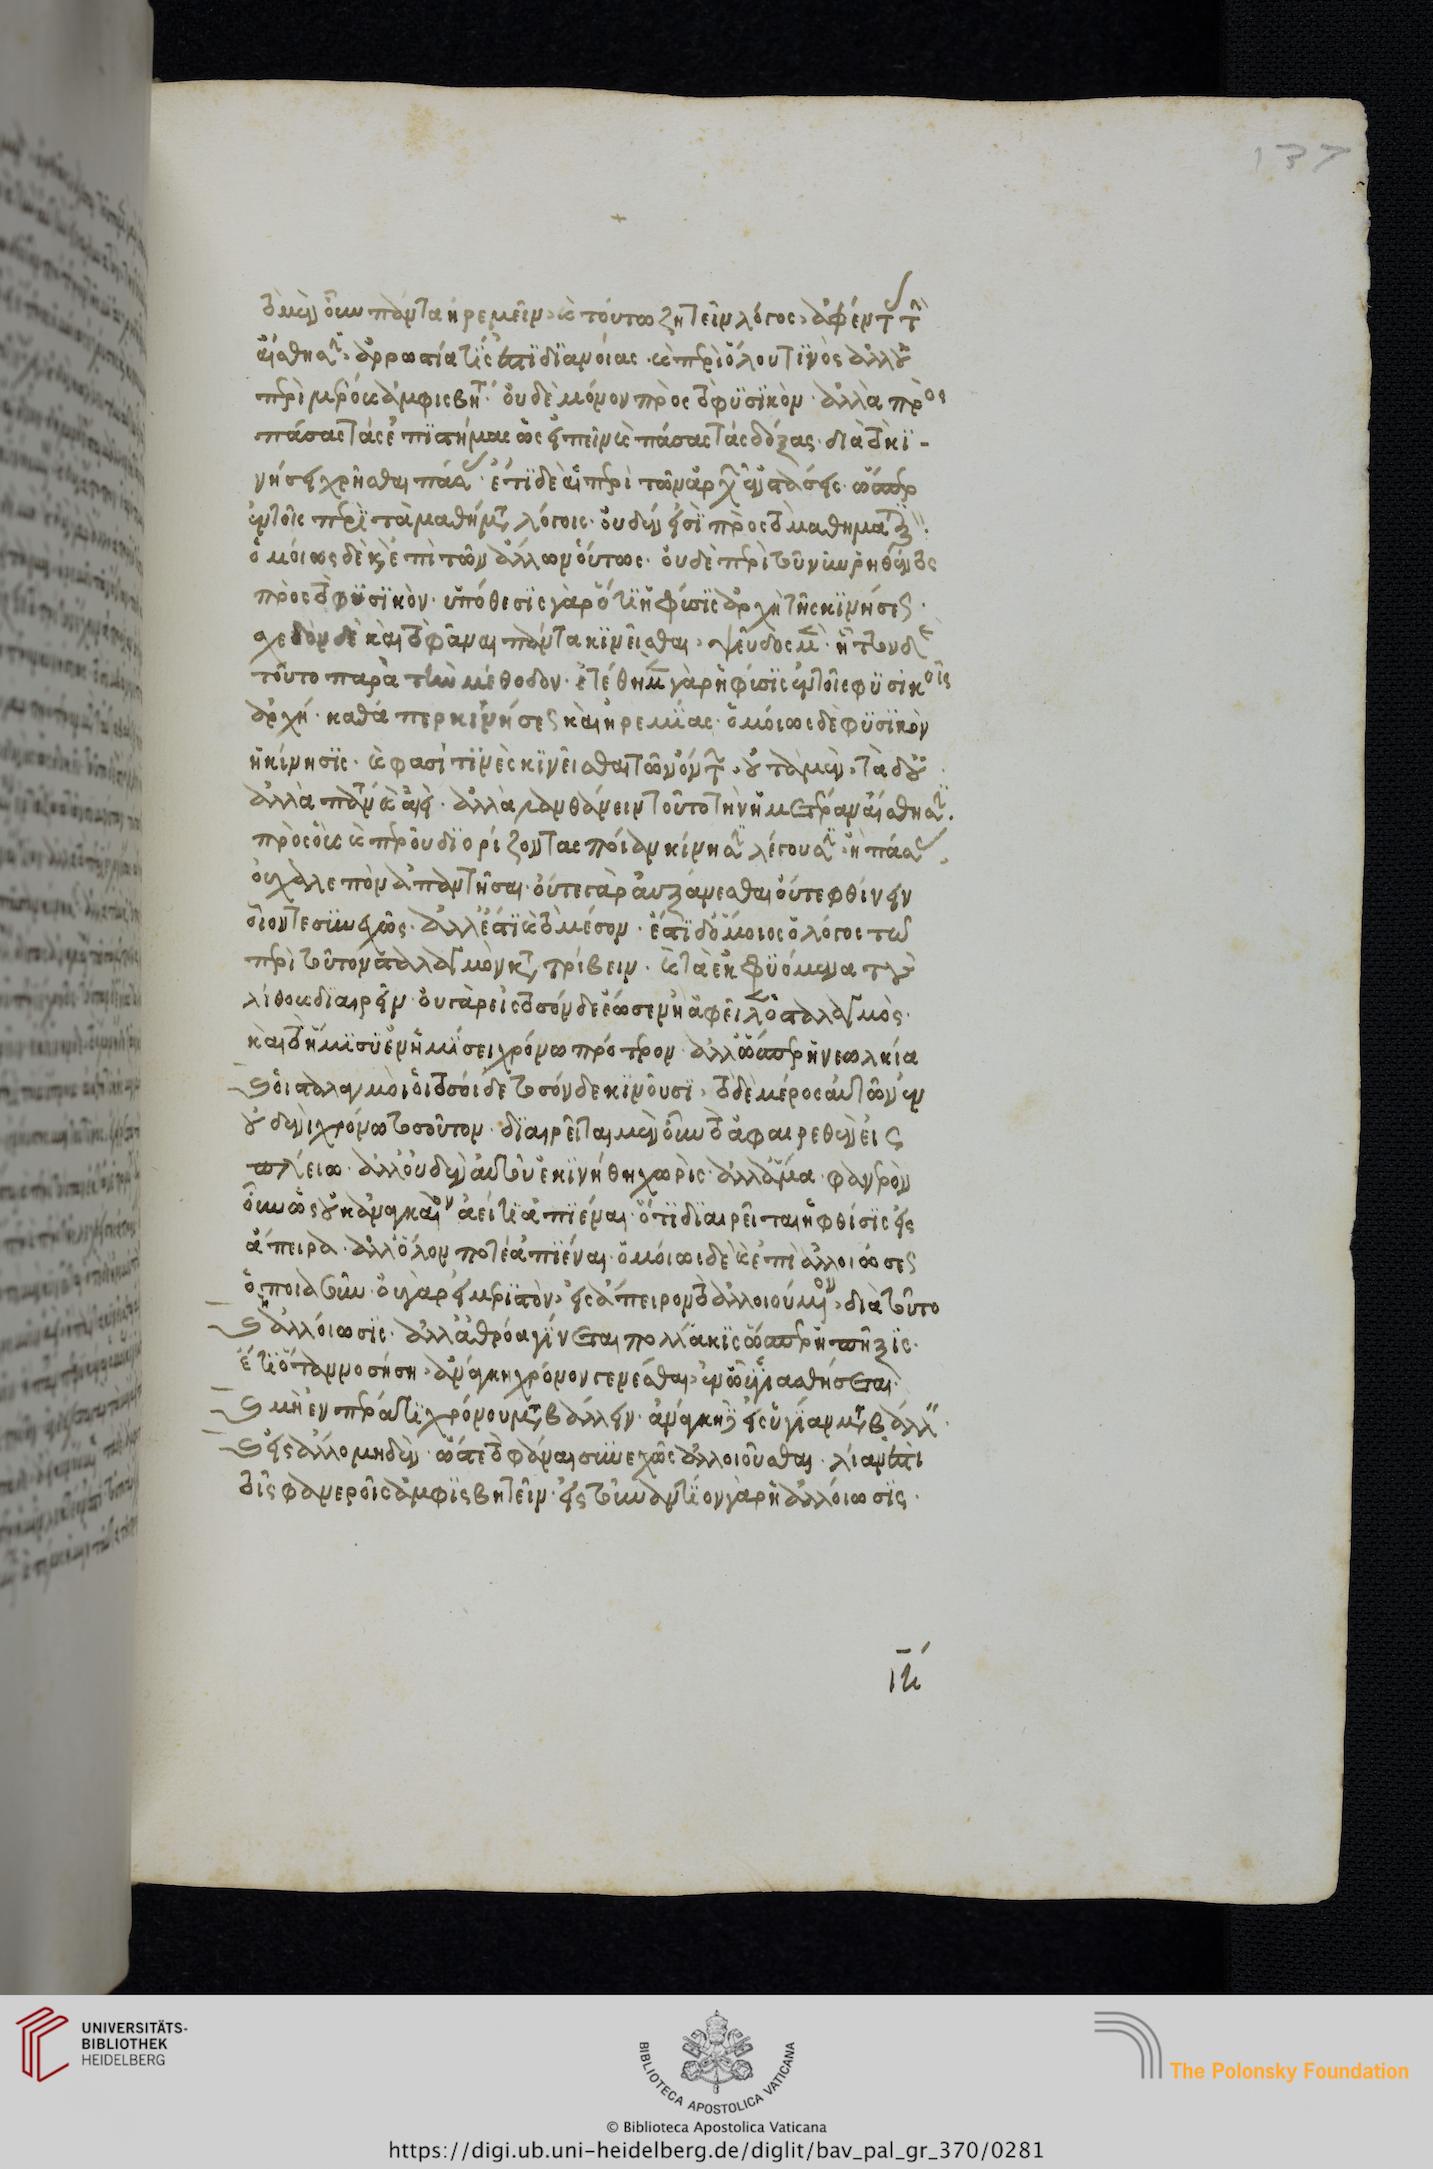 τὸ μὲν οὖν πάντα ἠρεμεῖν, καὶ τούτω ζητεῖν λόγος, ἀφέντας τὴν
αἴσθησιν, ἀρρωστία τίς ἐστι διανοίας. καὶ περὶ ὅλου τινὸς ἀλλ' οὐ
περὶ μέρους ἀμφισβήτησις. οὐδὲ μόνον πρὸς τὸ φυσικὸν. ἀλλὰ πρὸς
πάσας τὰς ἐπιστήμας ὡς εἰπεῖν καὶ πάσας τὰς δόξας. διὰ τὸ κι-
νήσει χρῆσθαι πάσας. ἔτι δὲ αἱ περὶ τῶν ἀρχῶν ἐνστάσεις. ὥσπερ
ἐν τοῖς περὶ τὰ μαθήματα λόγοις. οὐδέν εἰσι πρὸς τὸ μαθηματικόν.
ὁμοίως δὲ καὶ ἐπὶ τῶν ἄλλων οὕτως. οὐδὲ περὶ τοῦ νῦν ῥηθέντος
πρὸς τὸ φυσικὸν. ὑπόθεσις γὰρ ὅτι ἡ φύσις ἀρχὴ τῆς κινήσεως.
σχεδὸν δὲ καὶ τὸ φᾶναι πάντα κινεῖσθαι, ψεῦδος μὲν. ἧττον δὲ
τοῦτο παρὰ τὴν μέθοδον. ἐτέθη μὲν γὰρ ἡ φύσις ἐν τοῖς φυσικοῖς
ἀρχή. καθάπερ κινήσεως καὶ ἠρεμίας. ὁμοίως δὲ φυσικὸν
ἡ κίνησις. καὶ φασί τινὲς κινεῖσθαι τῶν ὄντων, οὐ τὰ μὲν, τὰ δ' οὔ.
ἀλλὰ πάντα καὶ ἀεί. ἀλλὰ λανθάνειν τοῦτο τὴν ἡμετέραν αἴσθησιν.
πρὸς οὓς καίπερ οὐ διορίζοντας ποίαν κίνησιν λέγουσιν, ἢ πάσας,
οὐ χαλεπὸν ἀπαντῆσαι. οὔτε γὰρ αὐξάνεσθαι οὔτε φθίνειν
οἷόν τε συνεχῶς. ἀλλ' ἔστι καὶ τὸ μέσον. ἔστι δ' ὅμοιος ὁ λόγος τῶ
περὶ τοῦ τὸν σταλαγμὸν κατατρίβειν. καὶ τὰ ἐκφυόμενα τοὺς
λίθους διαιρεῖν. οὐ γὰρ εἰ τοσόνδε ἐέωσεν ἢ ἀφεῖλεν ὁ σταλαγμὸς.
καὶ τὸ ἥμισυ ἐν ἡμίσει χρόνω πρότερον. ἀλλ' ὥσπερ ἡ νεωλκία
καὶ οἱ σταλαγμοὶ οἱ τοσοίδε τοσόνδε κινοῦσι, τὸ δὲ μέρος αὐτῶν ἐν
οὐδενὶ χρόνω τοσοῦτον. διαιρεῖται μὲν οὖν τὸ ἀφαιρεθὲν εἰς
πλείω. ἀλλ' οὐδὲν αὐτοῦ ἐκινήθη χωρὶς. ἀλλ' ἅμα. φανερὸν
οὖν ὡς οὐκ ἀναγκαῖον ἀεί τι ἀπιέναι. ὅτι διαιρεῖται ἡ φθίσις εἰς
ἄπειρα. ἀλλ' ὅλον ποτέ ἀπιέναι. ὁμοίως δὲ καὶ ἐπὶ ἀλλοιώσεως
ὁποιασοῦν. οὐ γὰρ εἰ μεριστὸν, εἰς ἄπειρον τὸ ἀλλοιούμενον, διὰ τοῦτο
καὶ ἡ ἀλλοίωσις. ἀλλ' ἀθρόα γίνεται πολλάκις ὥσπερ ἡ πῆξις.
ἔτι ὅταν νοσήση, ἀνάγκη χρόνον γενέσθαι, ἐν ὧ ὑγιασθήσεται
καὶ μὴ ἐν πέρατι χρόνου μεταβάλλειν. ἀνάγκη δὲ εἰς ὑγίαν μεταβάλλειν
καὶ εἰς ἄλλο μηδέν. ὥστε τὸ φάναι συνεχῶς ἀλλοιοῦσθαι. λίαν ἐστὶ
τοῖς φανεροῖς ἀμφισβητεῖν. εἰς τοὐναντίον γὰρ ἡ ἀλλοίωσις.
137
UNIVERSITÄTS-
BIBLIOTHEK
HEIDELBERG
BIBLIOTECA APOSTOLICA VATICANA
The Polonsky Foundation
© Biblioteca Apostolica Vaticana
https://digi.ub.uni-heidelberg.de/diglit/bav_pal_gr_370/0281